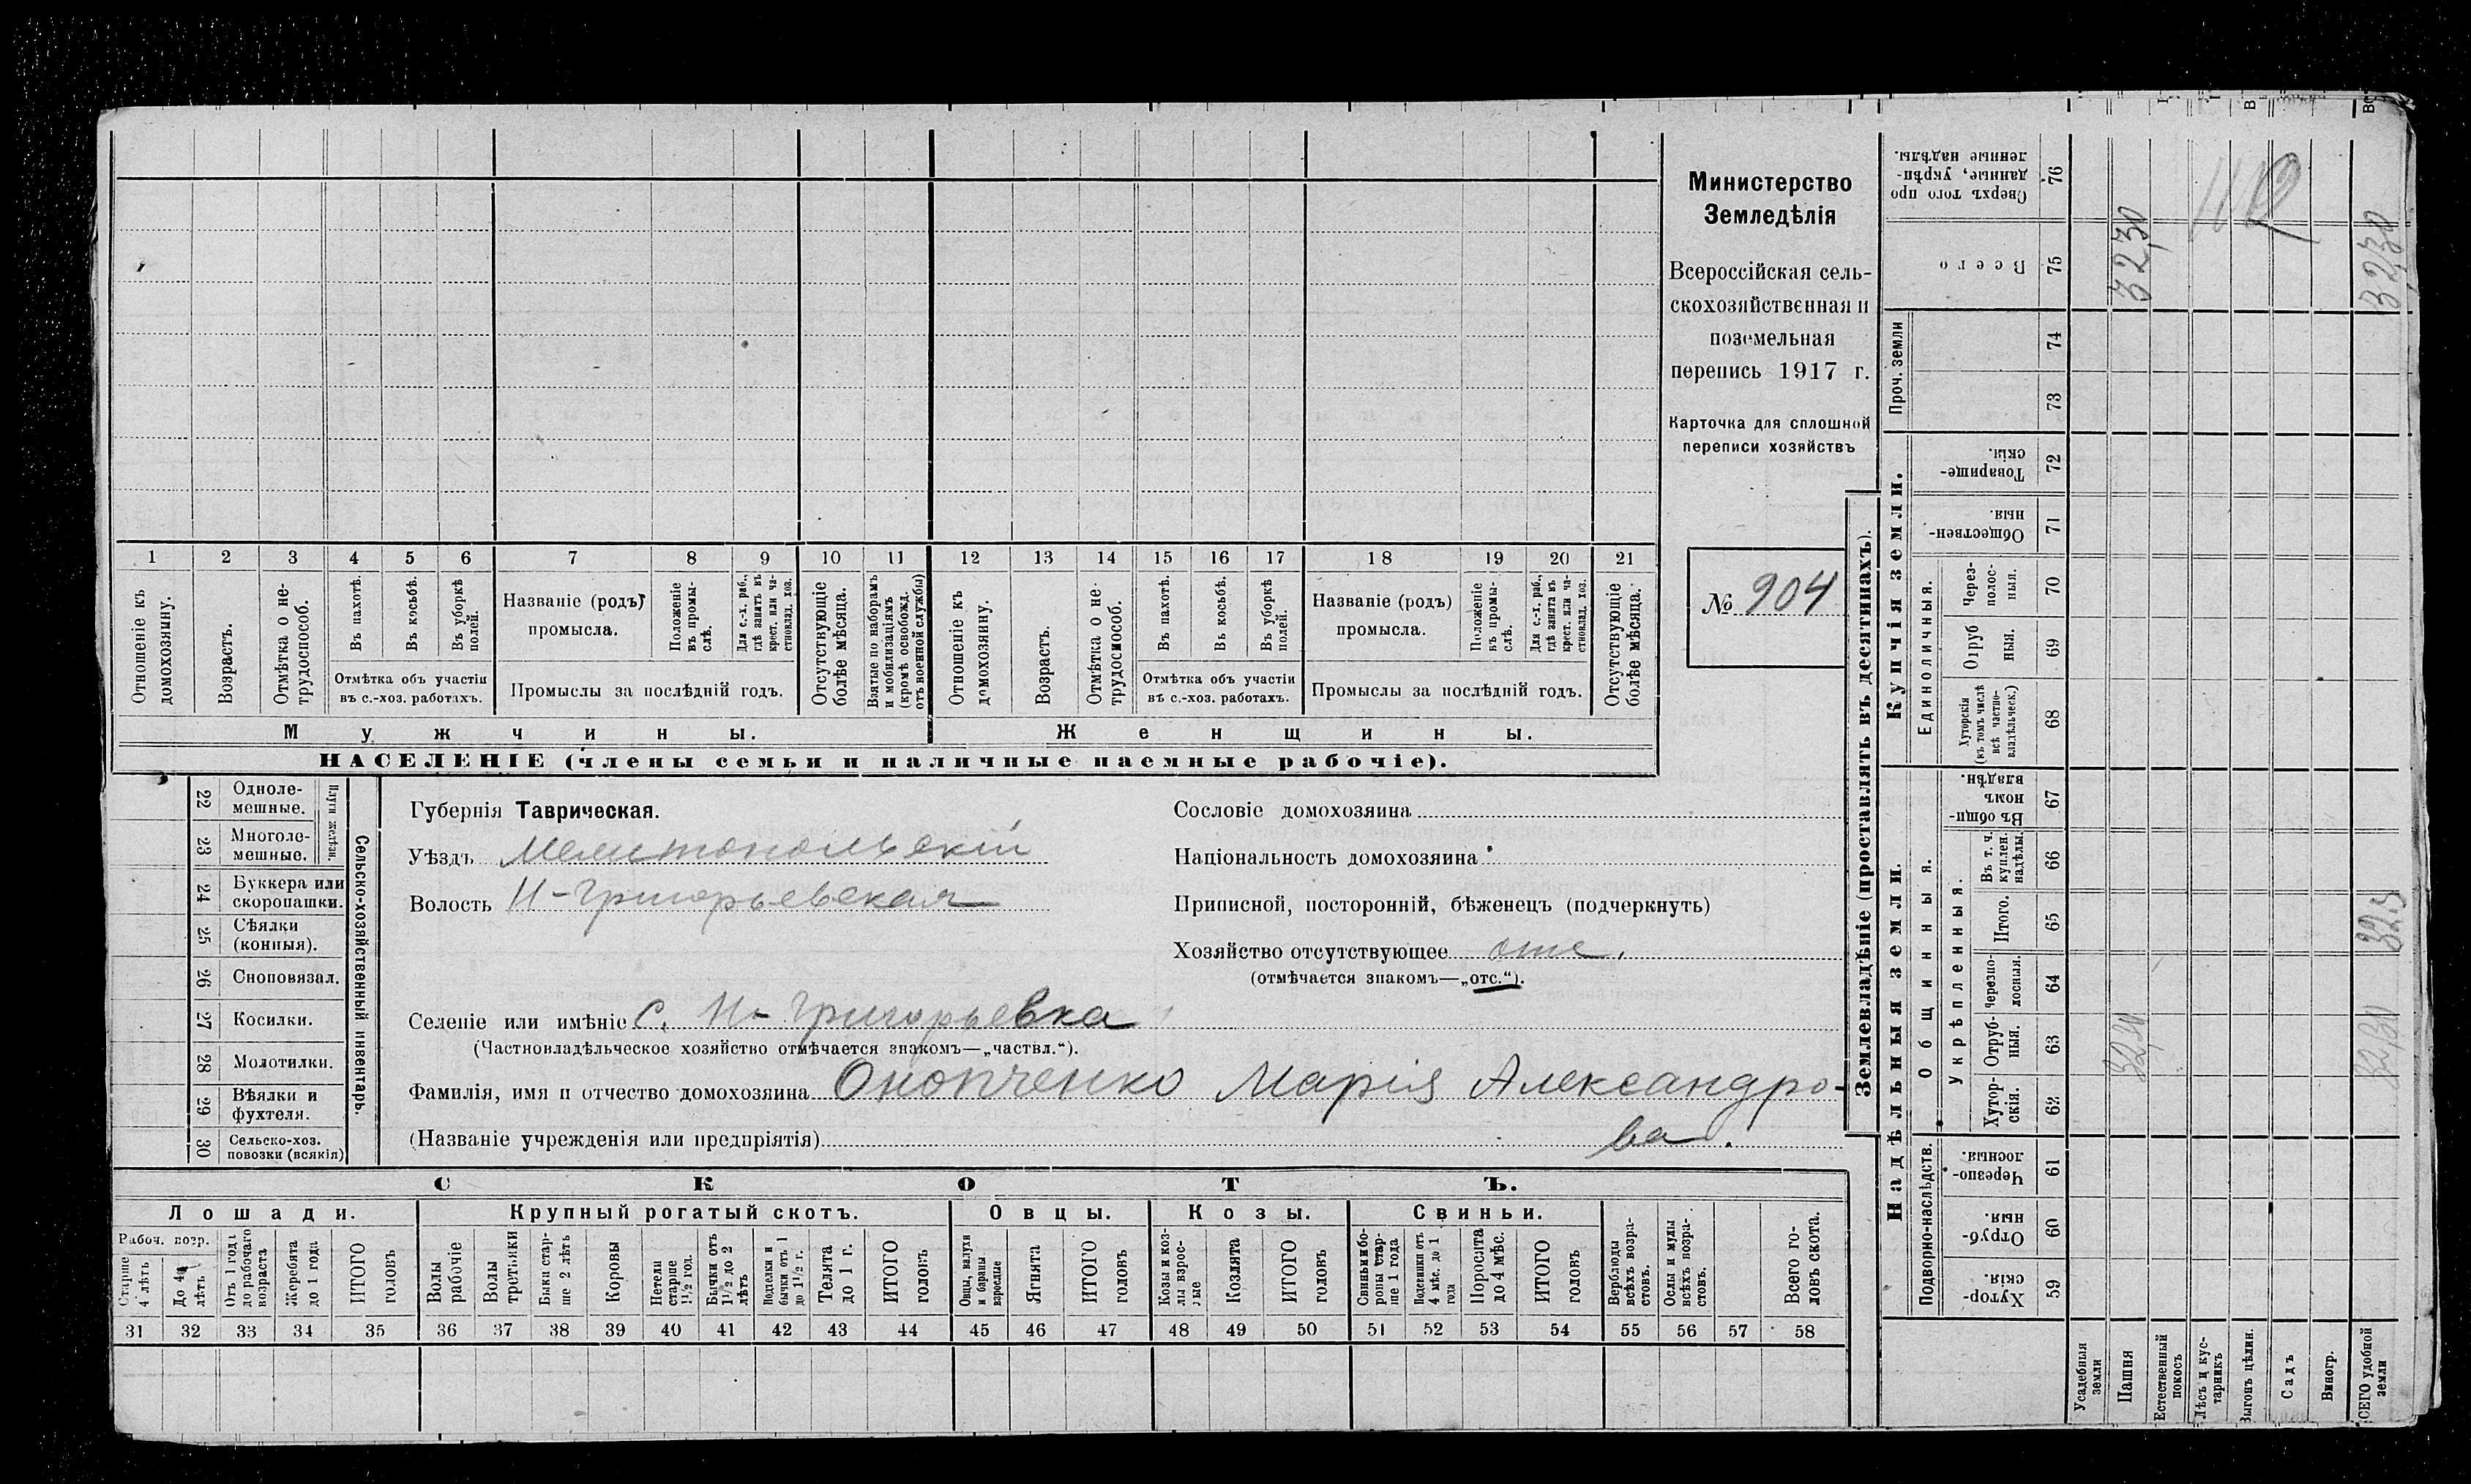 Министерство
Земледѣлія
Всероссійская сель-
скохозяйственная и
поземельная
перепись 1917 г.
Карточка для сплошной
переписи хозяйствъ
№ 904
1 2 3 4 5 6 7 8 9 10 11 12 13 14 15 16 17 18 19 20 21
Отношеніе къ домохозяину.
Возрастъ.
Отмѣтка о не-
трудоспособ.
Въ пахотѣ.
Въ косьбѣ.
Въ уборкѣ
полей.
Отмѣтка объ участіи
въ с.-хоз. работахъ.
Названіе (родъ)
промысла.
Положеніе
въ промы-
слѣ.
Для с.-х. раб.,
гдѣ занятъ въ
крест. или ча-
стновлад. хоз.
Промыслы за послѣдній годъ.
Отсутствующіе
болѣе мѣсяца.
Взятые по наборамъ
и мобилизаціямъ
(кромѣ освобожд.
отъ военной службы)
Отношеніе къ
домохозяину.
Возрастъ.
Отмѣтка о не-
трудоспособ.
Въ пахотѣ.
Въ косьбѣ.
Въ уборкѣ
полей.
Отмѣтка объ участіи
въ с.-хоз. работахъ.
Названіе (родъ)
промысла.
Положеніе
въ промы-
слѣ.
Для с.-х. раб.,
гдѣ занята въ
крест. или ча-
стновлад. хоз.
Промыслы за послѣдній годъ.
Отсутствующіе
болѣе мѣсяца.
Мужчины.
Женщины.
НАСЕЛЕНІЕ (члены семьи и наличные наемные рабочіе).
22 Одноле-
мешные.
23 Многоле-
мешные.
Плуги желѣзн.
24 Буккера или
скоропашки.
25 Сѣялки
(конныя).
26 Сноповязал.
27 Косилки.
28 Молотилки.
29 Вѣялки и
фухтеля.
30 Сельско-хоз.
повозки (всякія)
Сельско-хозяйственный инвентарь.
Губернія Таврическая.
Уѣздъ Мелитопольскій
Волость Н-Григорьевская
Сословіе домохозяина
Національность домохозяина
Приписной, посторонній, бѣженецъ (подчеркнуть)
Хозяйство отсутствующее отс.
(отмѣчается знакомъ—„отс.“).
Селеніе или имѣніе с. Н-Григорьевка
(Частновладѣльческое хозяйство отмѣчается знакомъ—„частвл.“).
Фамилія, имя и отчество домохозяина Онопченко Марія Александро-
(Названіе учрежденія или предпріятія) ва.
СКОТЪ.
Лошади.
Крупный рогатый скотъ.
Овцы.
Козы.
Свиньи.
Рабоч. возр.
Старше
4 лѣтъ
До 4
лѣтъ
Отъ 1 года
до рабочаго
возраста
Жеребята
до 1 года
ИТОГО
головъ
Волы
рабочіе
Волы
третьяки
Быки стар-
ше 2 лѣтъ
Коровы
Нетели
старше
1½ год.
Бычки отъ
1½ до 2
лѣтъ
Подтелки и
бычки отъ 1
до 1½ г.
Телята
до 1 г.
ИТОГО
головъ
Овцы, валухи
и бараны
взрослые
Ягнята
ИТОГО
головъ
Козы и коз-
лы взрос-
лые
Козлята
ИТОГО
головъ
Свиньи и бо-
ровы стар-
ше 1 года
Подсвинки отъ
4 мѣс. до 1
года
Поросята
до 4 мѣс.
ИТОГО
головъ
Верблюды
всѣхъ возра-
стовъ.
Ослы и мулы
всѣхъ возра-
стовъ.
Всего го-
ловъ скота.
31 32 33 34 35 36 37 38 39 40 41 42 43 44 45 46 47 48 49 50 51 52 53 54 55 56 57 58
Землевладѣніе (проставлять въ десятинахъ).
Надѣльныя земли.
Подворно-наслѣдств.
Хутор-
скія. 59
Отруб-
ныя. 60
Черезпо-
лосныя. 61
Общинныя.
Укрѣпленныя.
Хутор-
скія. 62
Отруб-
ныя. 63
Черезпо-
лосныя. 64
Итого. 65
Въ т. ч.
куплен.
надѣлы. 66
Въ общин-
номъ
владѣн. 67
Купчія земли.
Единоличныя.
Хуторскія
(въ томъ числѣ
всѣ частно-
владѣльческ.) 68
Отруб
ныя. 69
Через-
полос-
ныя. 70
Обществен-
ныя. 71
Товарище-
скія. 72
Проч. земли
73 74
Всего 75
Сверхъ того про
данные, укрѣп-
ленные надѣлы. 76
Усадебныя
земли
Пашня
32,30
32,30
Естественный
покосъ
Лѣсъ и кус-
тарникъ
Выгонъ цѣлин.
Садъ
Виногр.
ВСЕГО удобной
земли
32,30
32,30